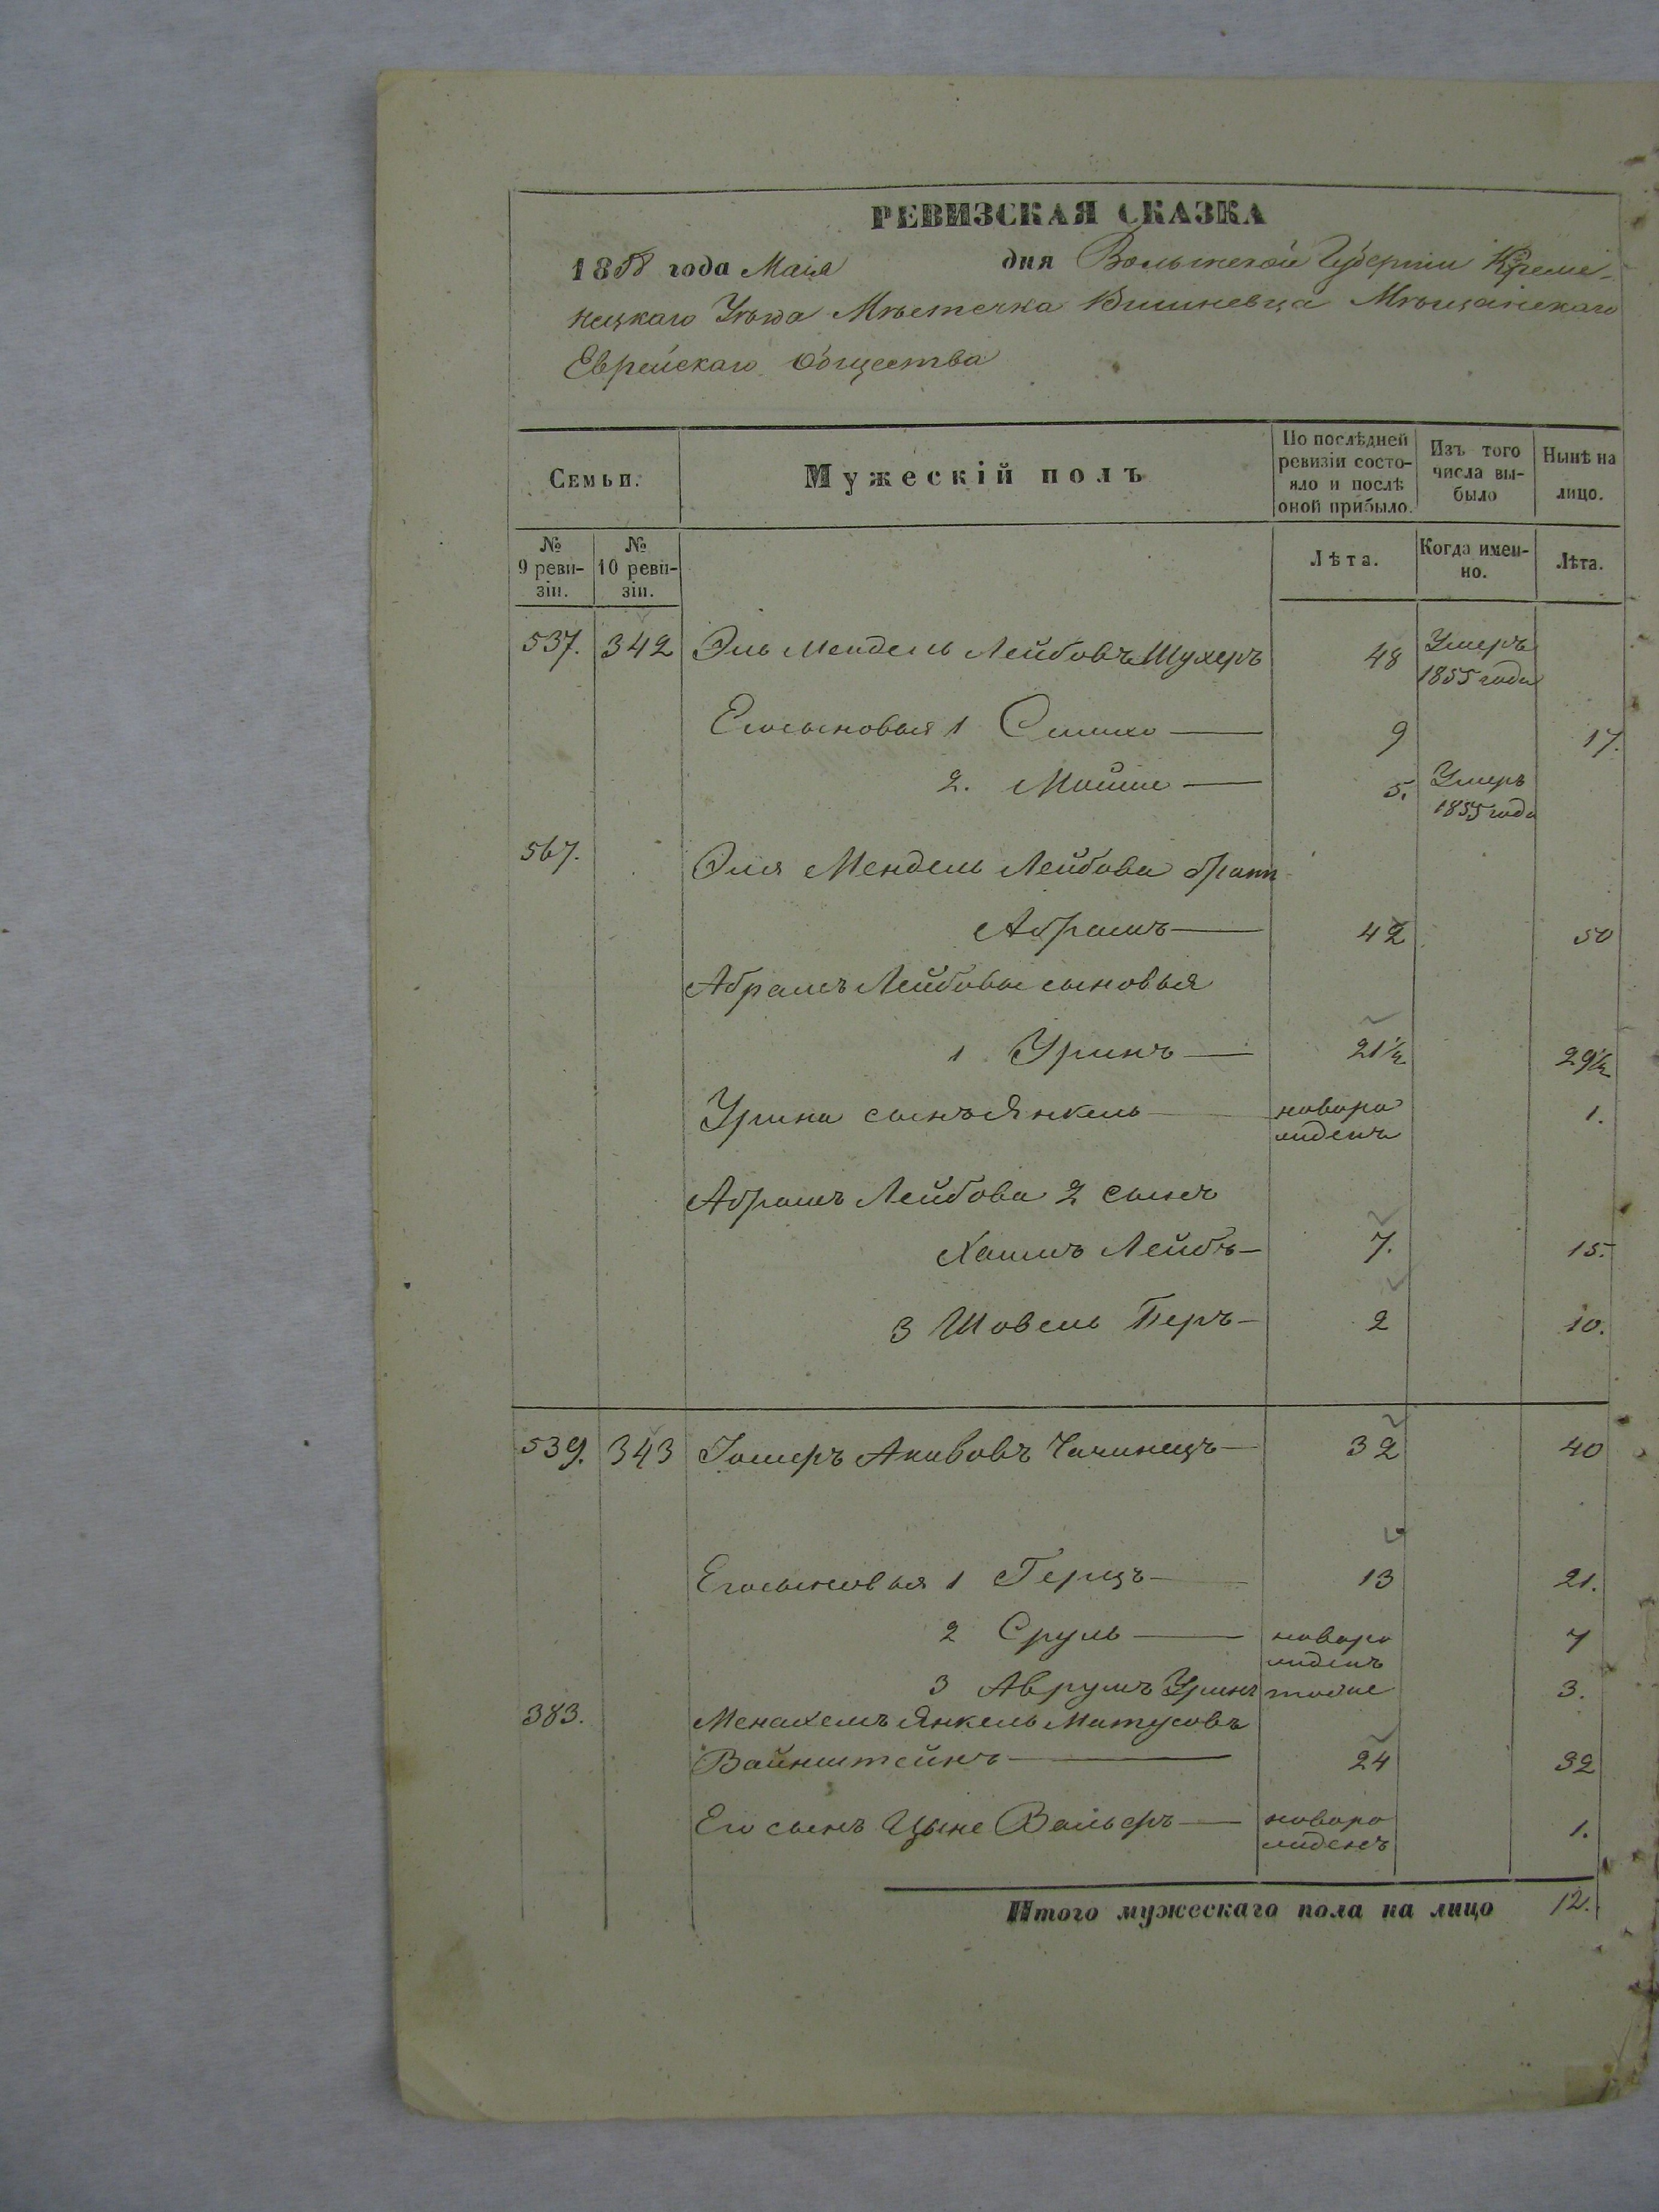 РЕВИЗСКАЯ СКАЗКА
1858 года Маія дня Волынской Губерніи Креме-
нецкаго Уѣзда Мѣстечка Вишневца Мѣщанскаго
Еврейскаго Общества
Семьи.
Мужескій полъ
По послѣдней ревизіи состо-яло и послѣ оной прибыло.
Изъ того числа вы-было
Нынѣ на лицо.
№ 9 реви-зіи.
№ 10 реви-зіи.
Лѣта.
Когда имен-но.
Лѣта.
537. 342 Эль Мендель Лейбовъ Шухеръ 48 Умеръ 1855 года
Его сыновья 1 9 17.
2. Мойше 5. Умеръ 1855 года
567. Эля Мендель Лейбова братъ
Абрамъ 42 50
Абрамъ Лейбовы сыновья
1 Уринъ 21½ 29½
Урина сынъ Янкель новоро жденъ 1.
Абрамъ Лейбова 2 сынъ
Хаимъ Лейбъ 7. 15.
3 Шовель Беръ 2 10.
539. 343 Іомеръ Акивовъ 32 40
Его сыновья 1 Герцъ 13 21.
2 Сруль новоро жденъ 7
3 Аврумъ Уринъ тоже 3.
383. Менахемъ Янкель Матусовъ
Вайнштейнъ 24 32
Его сынъ новоро жденъ 1.
Итого мужескаго пола на лицо 12.